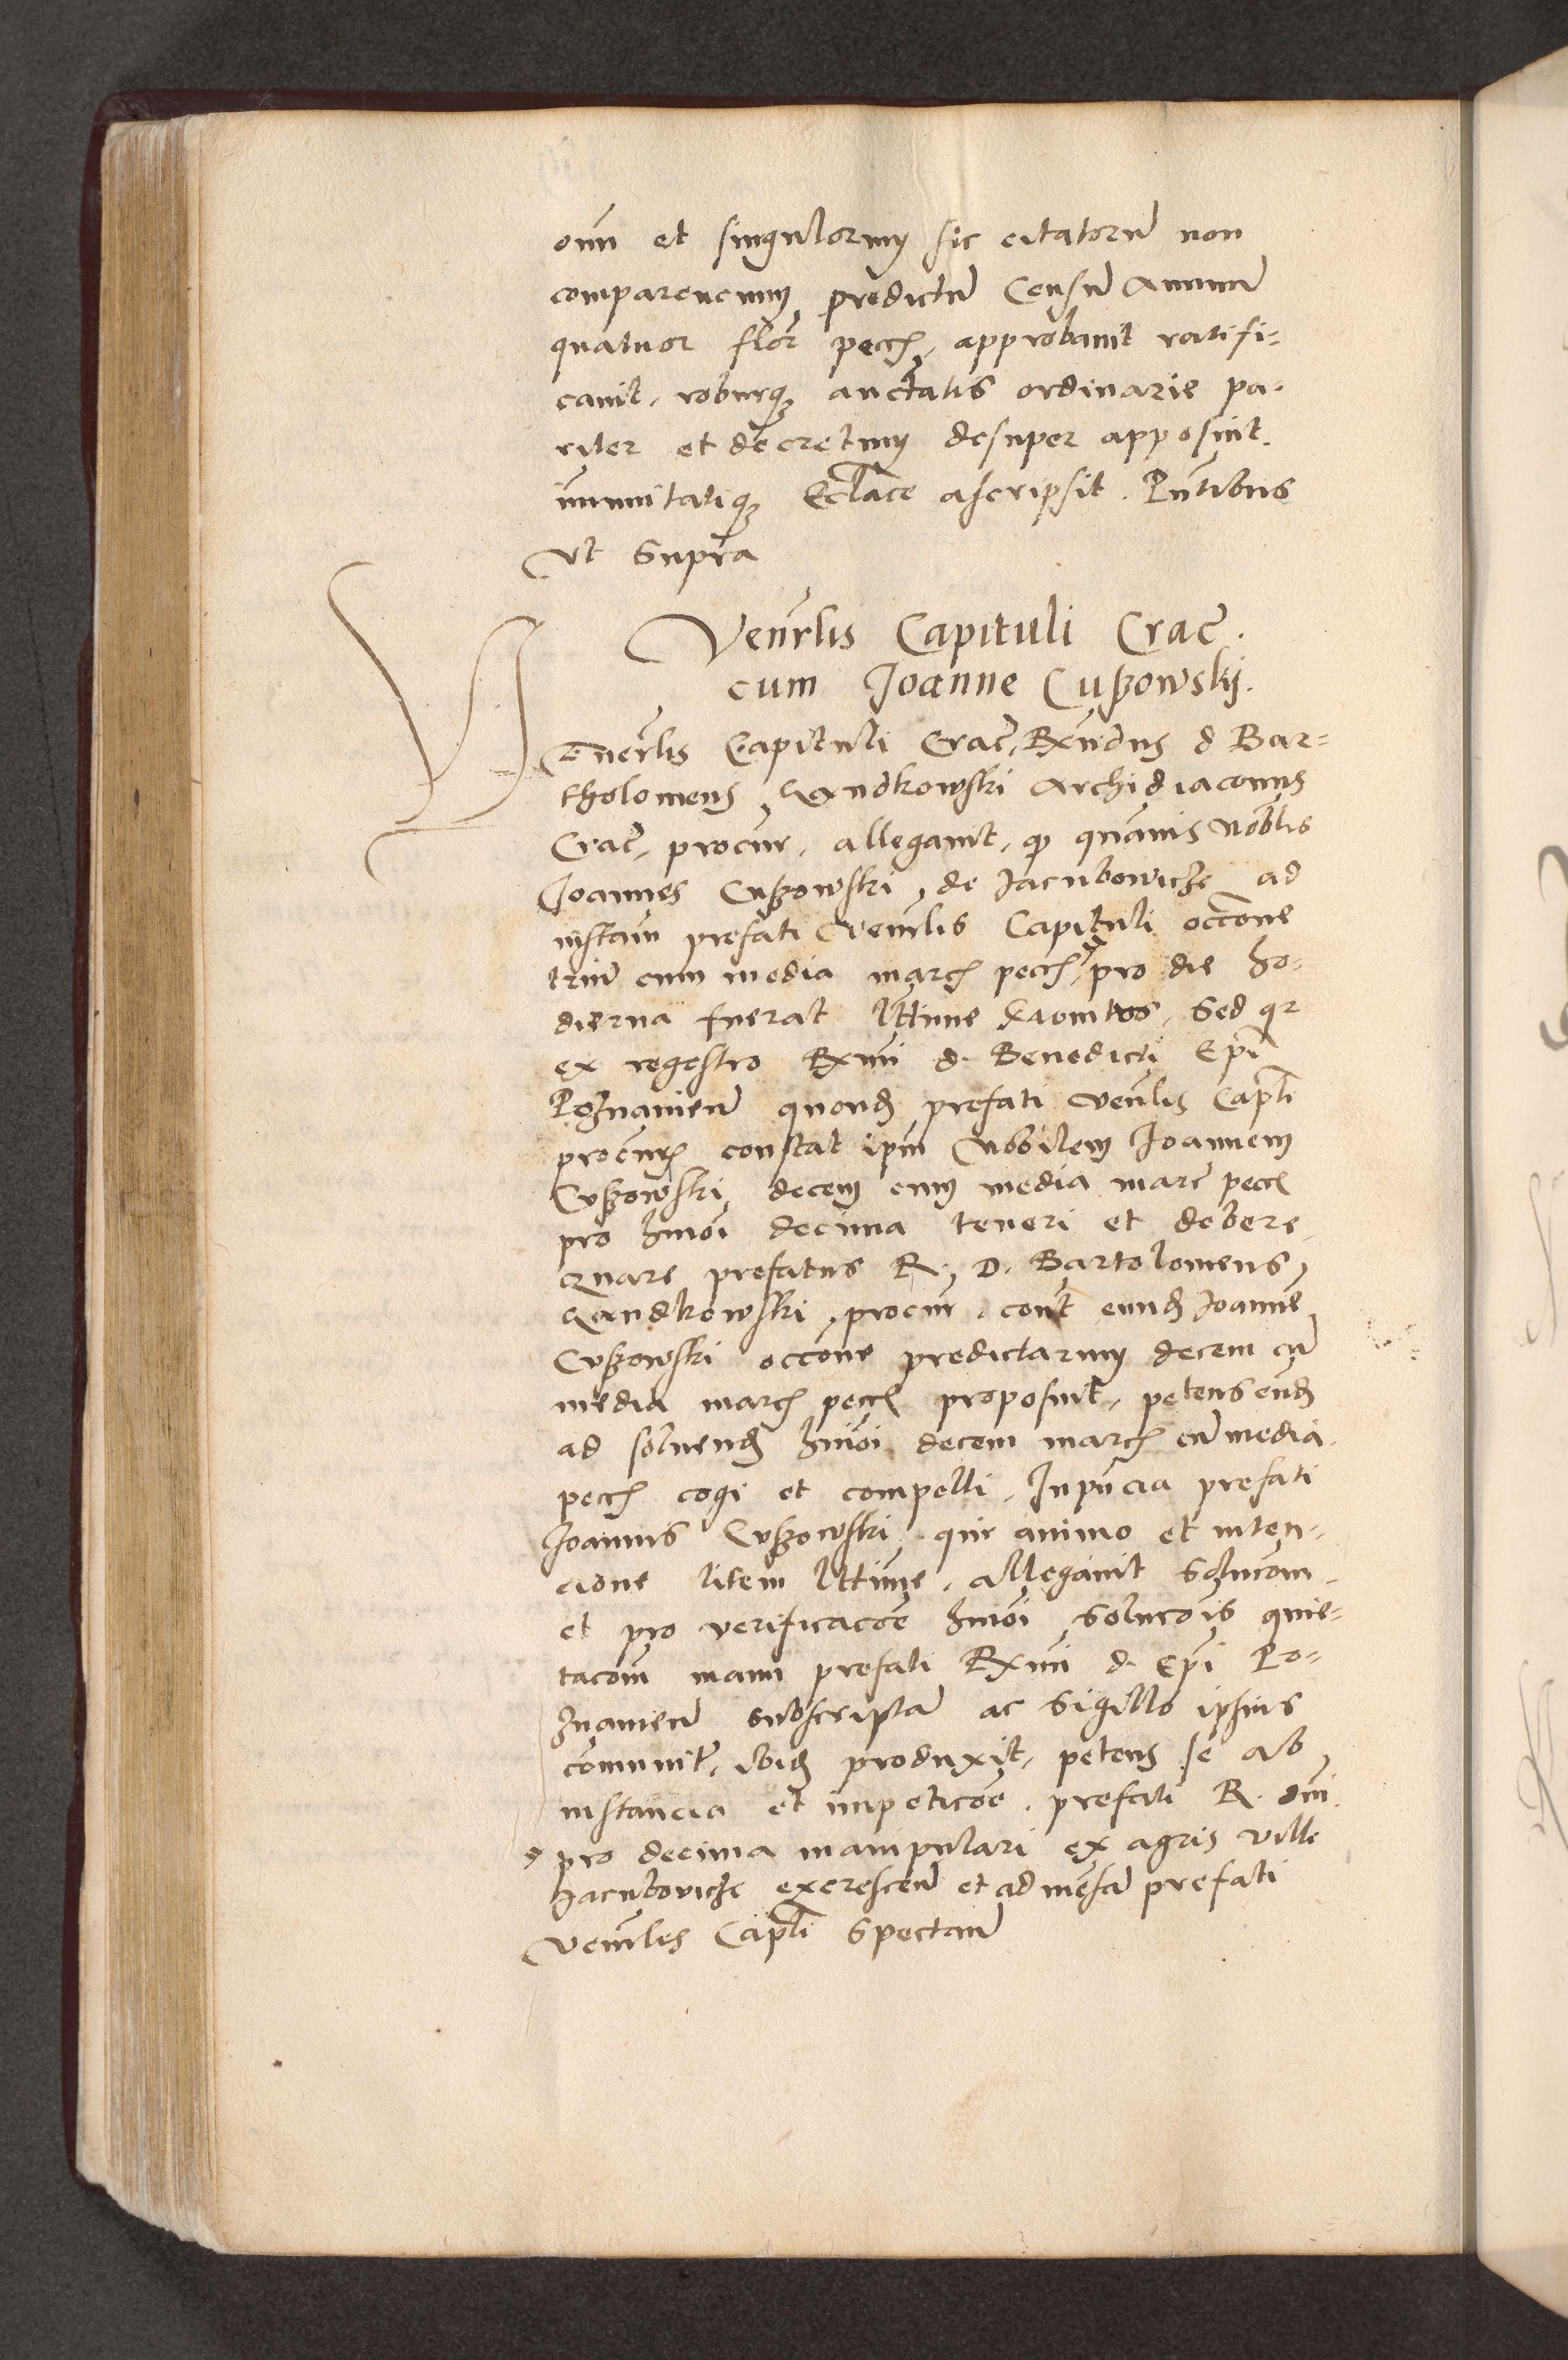 om̄ et singulorum sic citatorum̄ non
comparencium predictum̄ Censum̄ Annuum̄
quatuor flor̄ pecc̄, approbauit ratifi-
cauit, roburq̨ auctātis ordinarie pa-
riter et decretum desuper apposuit.
immunitatiq̨ Ecclāce ascripsit. Pn̄tibus
Vt Supra
Venr̄lis Capituli Crac̄.
cum Joanne Cußowskij.
VEner̄lis Capituli Crac̄, Rx̄ndus d Bar-
tholomeus Gandkowski Archidiaconus
Crac̄, procur, allegauit, q̨ quāuis Nob̄lis
Joannes Cußowski, de Jacubowicze ad
instan̄ prefati Venr̄lis Capituli occōne
trium̄ cum media marc̄ pecc̄, pro die ho-
dierna fuerat ltt̄ime, Sed qr
ex regestro Rx̄mi d. Benedicti Ep̄i
Poznanien̄ quond̨ prefati Ven̄lis Cap̄li
procur̄ constat ip̄m Nobilem Joannem
Cußowski, decem cum media marc̄ pecc̄
pro hmōi decima teneri et debere,
Quare prefatus R. D. Bartolomeus,
Gandkowski, procur, cont̄ eund̨ Joannē
Cußowski occōne predictarum decem cū
media marc̄ pecc̄ proposuit, petens eund̨
ad soluend̨ hmōi decem marc̄ cū media
pecc̄ cogi et compelli, In pn̄cia prefati
Joannis Cußowski, qui animo et inten-
cione litem ltt̄ime, allegauit Solucōm
et pro verificacōe hmōi Solucōis quie-
tacōm manu prefati Rx̄mi d. Ep̄i Po-
znanien̄ subscriptā ac Sigillo ipsius
cōmunit̄, ibid̨ produxit, petens se ab
instancia et impeticōe, prefati R. dn̄i
pro decima manipulari ex agris ville
Jacuboviche excrescen̄ et ad mēsā prefati
Venr̄lis Cap̄li Spectan̄